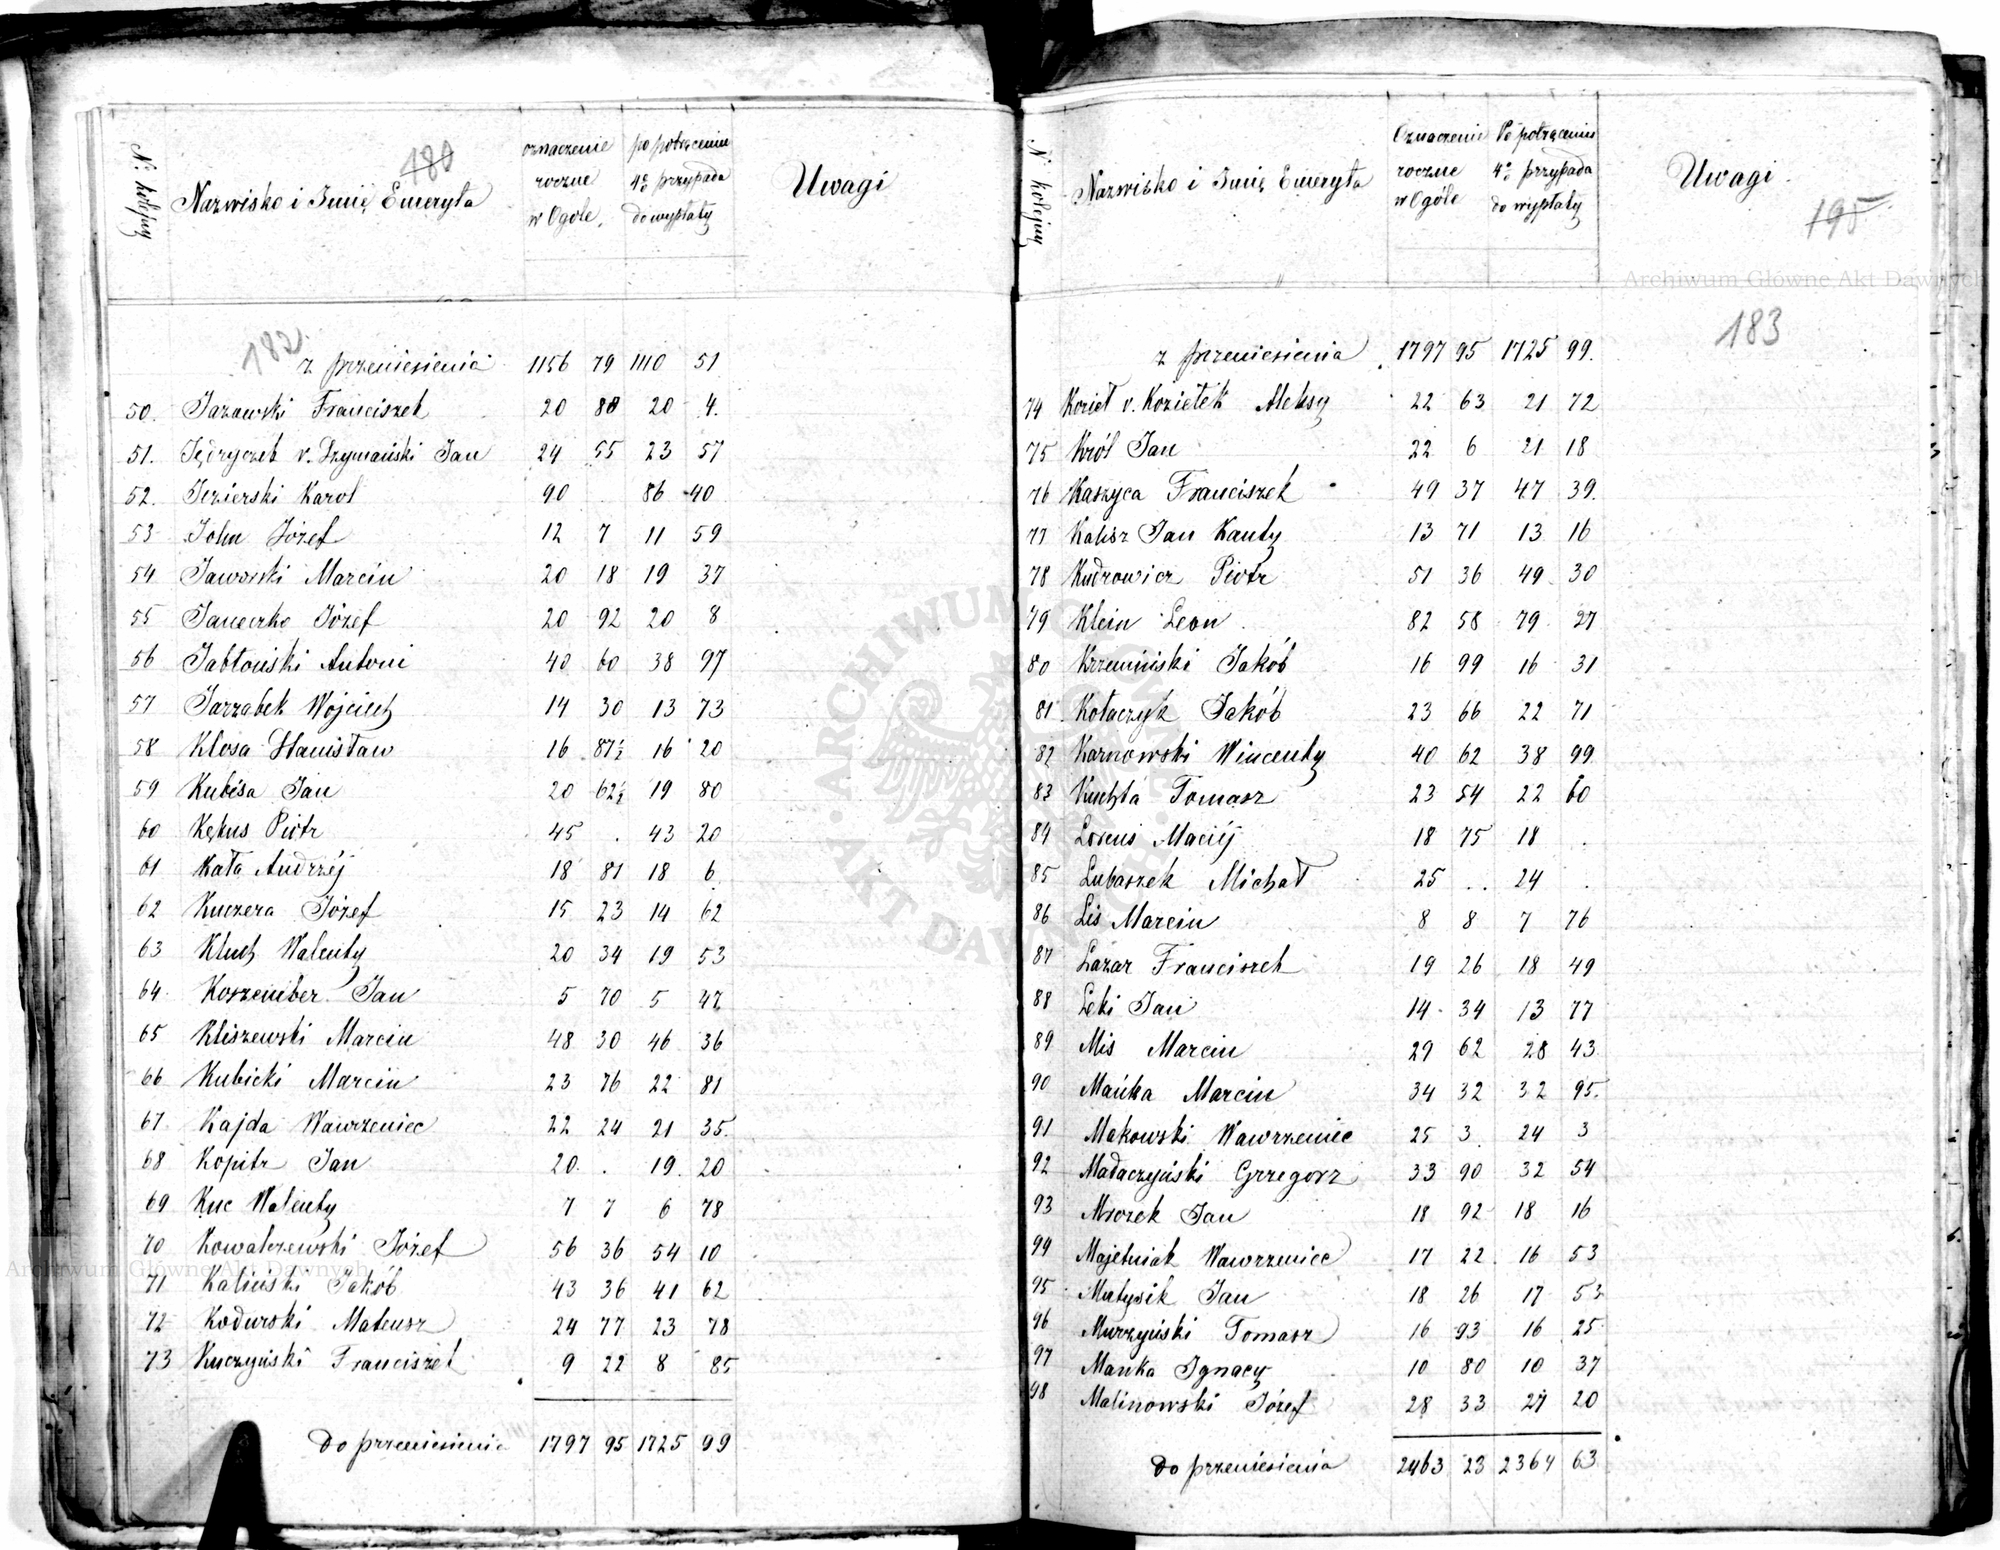 N: kolejny Nazwisko i Imię Emeryta oznaczenie roczne w Ogóle, po potrąceniu 4% przypada do wypłaty Uwagi
180
182.
z przeniesienia 1156 79 1110 51
50. Jazawski Franciszek 20 88 20 4.
51. Jędryczek v. Dzymański Jan 24 55 23 57
52. Jezierski Karol 90 . 86 40
53 John Józef 12 7 11 59
54 Jaworski Marcin 20 18 19 37
55 Janeczko Józef 20 92 20 8
56 Jabłoński Antoni 40 60 38 97
57 Jarzabek Wojciech 14 30 13 73
58 Klosa Stanisław 16 87½ 16 20
59 Kubisa Jan 20 62½ 19 80
60 Kękus Piotr 45 . 43 20
61 Kała Andrzéj 18 81 18 6
62 Kuczera Józef 15 23 14 62
63 Kluch Walenty 20 34 19 53
64 Koszember Jan 5 70 5 47
65 Kliszewski Marcin 48 30 46 36
66 Kubicki Marcin 23 76 22 81
67 Kajda Wawrzeniec 22 24 21 35.
68 Kopitz Jan 20 . 19 20
69 Kuc Walenty 7 7 6 78
70 Kowalczewski Józef 56 36 54 10
71 Kaliński Jakób 43 36 41 62
72 Kodurski Mateusz 24 77 23 78
73 Kuczyński Franciszek 9 22 8 85
Do przeniesienia 1797 95 1725 99
N: kolejny Nazwisko i Imię Emeryta Oznaczenie roczne w Ogóle Po potrąceniu 4% przypada do wypłaty Uwagi.
195
Archiwum Główne Akt Dawnych
183
z przeniesienia 1797 95 1725 99.
74 Kozieł v. Koziełek Aleksy 22 63 21 72
75 Król Jan 22 6 21 18
76 Kaszyca Franciszek 49 37 47 39.
77 Kalisz Jan Kanty 13 71 13 16
78 Kudrowicz Piotr 51 36 49 30
79 Klein Leon 82 58 79 27
80 Krzemiński Jakób 16 99 16 31
81. Kołaczyk Jakób 23 66 22 71
82 Karnowski Wincenty 40 62 38 99
83 Kuchta Tomasz 23 54 22 60
84 Lorens Maciéj 18 75 18 .
85 Lubaszek Michał 25 .. 24 .
86 Lis Marcin 8 8 7 76
87 Lazar Franciszek 19 26 18 49
88 Leki Jan 14 34 13 77
89 Mis Marcin 29 62 28 43
90 Mańka Marcin 34 32 32 95.
91 Makowski Wawrzeniec 25 3 24 3
92 Madaczyński Grzegorz 33 90 32 54
93 Mrozek Jan 18 92 18 16
94 Majetniak Wawrzeniec 17 22 16 53
95 Matysik Jan 18 26 17 53
96 Murzyński Tomasz 16 93 16 25
97 Manka Ignacy 10 80 10 37
98 Malinowski Józef 28 33 27 20
Do przeniesienia 2463 23 2364 63
ARCHIWUM GŁÓWNE AKT DAWNYCH
Archiwum Główne Akt Dawnych